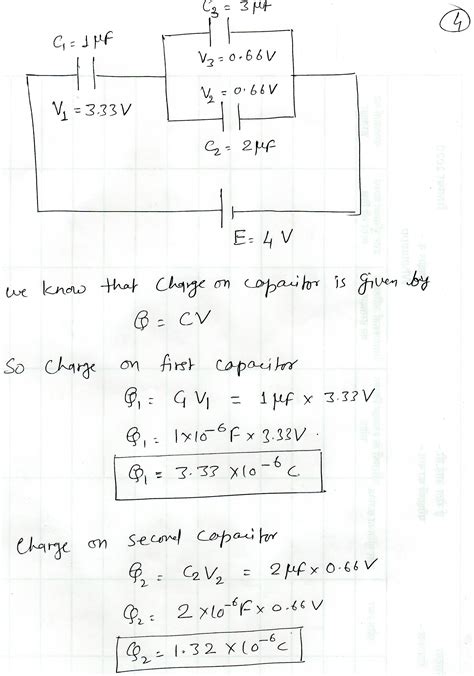 C₃ = 3 μf
4
C₁ = 1 μF
V₃ = 0.66V
V₂ = 0.66V
V₁ = 3.33V
C₂ = 2μF
E = 4 V
we know that Charge on capacitor is given by
Q = CV
So Charge on first capacitor
Q₁ = C₁V₁ = 1μf × 3.33V
Q₁ = 1×10⁻⁶F × 3.33V.
Q₁ = 3.33 ×10⁻⁶ C
Charge on second capacitor
Q₂ = C₂V₂ = 2μf × 0.66V
Q₂ = 2 ×10⁻⁶F × 0.66V
Q₂ = 1.32 ×10⁻⁶C